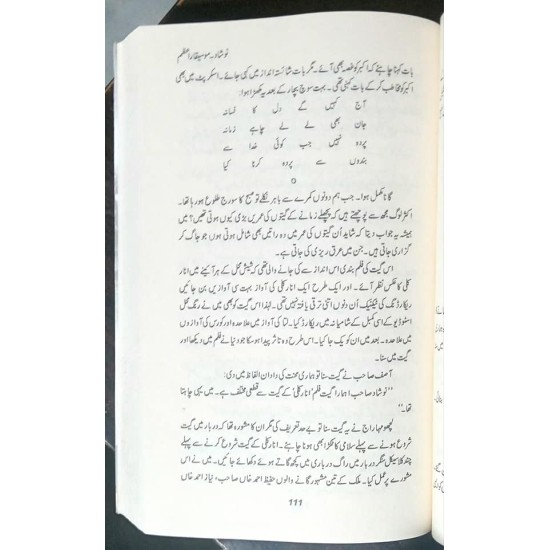 نوشاد۔ موسیقار اعظم
بات کہنا چاہئے کہ اکبر کو غصہ بھی آئے۔ مگر بات شائستہ انداز میں کہی جائے۔ اسکرپٹ میں بھی
اکبر کو مخاطب کر کے بات کہنی تھی۔ بہت سوچ بچار کے بعد یہ مکھڑا ہوا:
آج کہیں گے دل کا فسانہ
جان بھی لے لے چاہے زمانہ
پردہ نہیں جب کوئی خدا سے
بندوں سے پردہ کرنا کیا
گانا مکمل ہوا۔ جب ہم دونوں کمرے سے باہر نکلے تو صبح کا سورج طلوع ہو رہا تھا۔
اکثر لوگ مجھ سے پوچھتے ہیں کہ پچھلے زمانے کے گیتوں کی عمریں بڑی کیوں ہوتی تھیں؟ میں
ہمیشہ یہ جواب دیتا کہ شاید اُن گیتوں کی عمر میں وہ راتیں بھی شامل ہوتی ہوں! جو جاگ کر
گزاری جاتی ہیں۔ جن میں عرق ریزی کی جاتی ہے۔
اس گیت کی فلم بندی اس انداز سے کی جانے والی تھی کہ شیش محل کے ہر آئینے میں انار
کلی کا عکس نظر آئے۔ اور ایک طرح ایک انار کلی کی آواز بہت سی آوازیں بن جائیں
ریکارڈنگ کی ٹیکنیک اُن دنوں اتنی ترقی یافتہ نہیں تھی۔ لہٰذا اس گیت کو بھی میں نے رنگ محل
اسٹوڈیو کے اسی کمبل کے شامیانہ میں ریکارڈ کیا۔ لتا کی آواز میں علاحدہ اور کورس کی آوازوں
میں علاحدہ۔ اس کے بعد ان کو یک جا کیا۔ اس طرح وہ تاثر پیدا ہو سکا جو دنیا نے فلم میں دیکھا اور
گیت میں سنا۔
آصف صاحب نے گیت سنا تو ہماری محنت کی داد ان الفاظ میں دی:
"نوشاد صاحب! ہمارا گیت فلم 'انار کلی' کے گیت سے قطعی مختلف ہے۔ میں یہی چاہتا
تھا۔"
لچھو مہاراج نے یہ گیت سنا تو بے حد تعریف کی مگر ان کا مشورہ تھا کہ دربار میں گیت
شروع ہونے سے پہلے سلامی کا ٹکڑا بھی ہونا چاہئے۔ انار کلی کے گیت شروع کرنے سے پہلے
چند کلاسیکل سنگر دربار میں راگ درباری میں کچھ گاتے ہوئے دکھائے جائیں۔ میں نے اس
مشورے پر عمل کیا۔ ملک کے تین مشہور گانے والوں حفیظ احمد خاں صاحب، نیاز احمد خاں
111